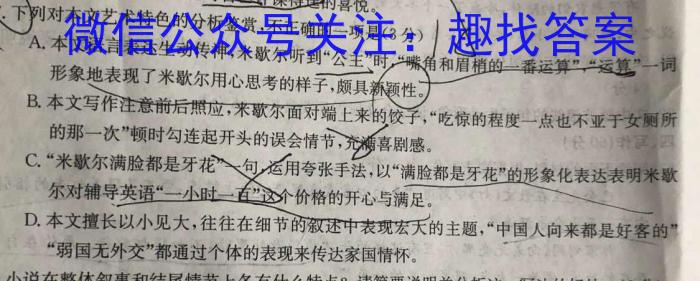 课得适的喜悦。
下列对本文艺术特色的分析鉴赏,不正确的一项是(3分)
微信公众号关注:趣找答案
A. 本文语言表达生动传神,米歇尔听到“公主”时,“嘴角和眉梢的一番运算”,“运算”一词
形象地表现了米歇尔用心思考的样子,颇具新颖性。
B. 本文写作注意前后照应,米歇尔面对端上来的饺子,“吃惊的程度一点也不亚于女厕所
的那一次”顿时勾连起开头的误会情节,充满喜剧感。
C. “米歇尔满脸都是牙花”一句,运用夸张手法,以“满脸都是牙花”的形象化表达表明米歇
尔对辅导英语“一小时一百”这个价格的开心与满足。
D. 本文擅长以小见大,往往在细节的叙述中表现宏大的主题,“中国人向来都是好客的”
“弱国无外交”都通过个体的表现来传达家国情怀。
小说在整体叙事和结尾情节上各有什么特点?请简要说明并分析